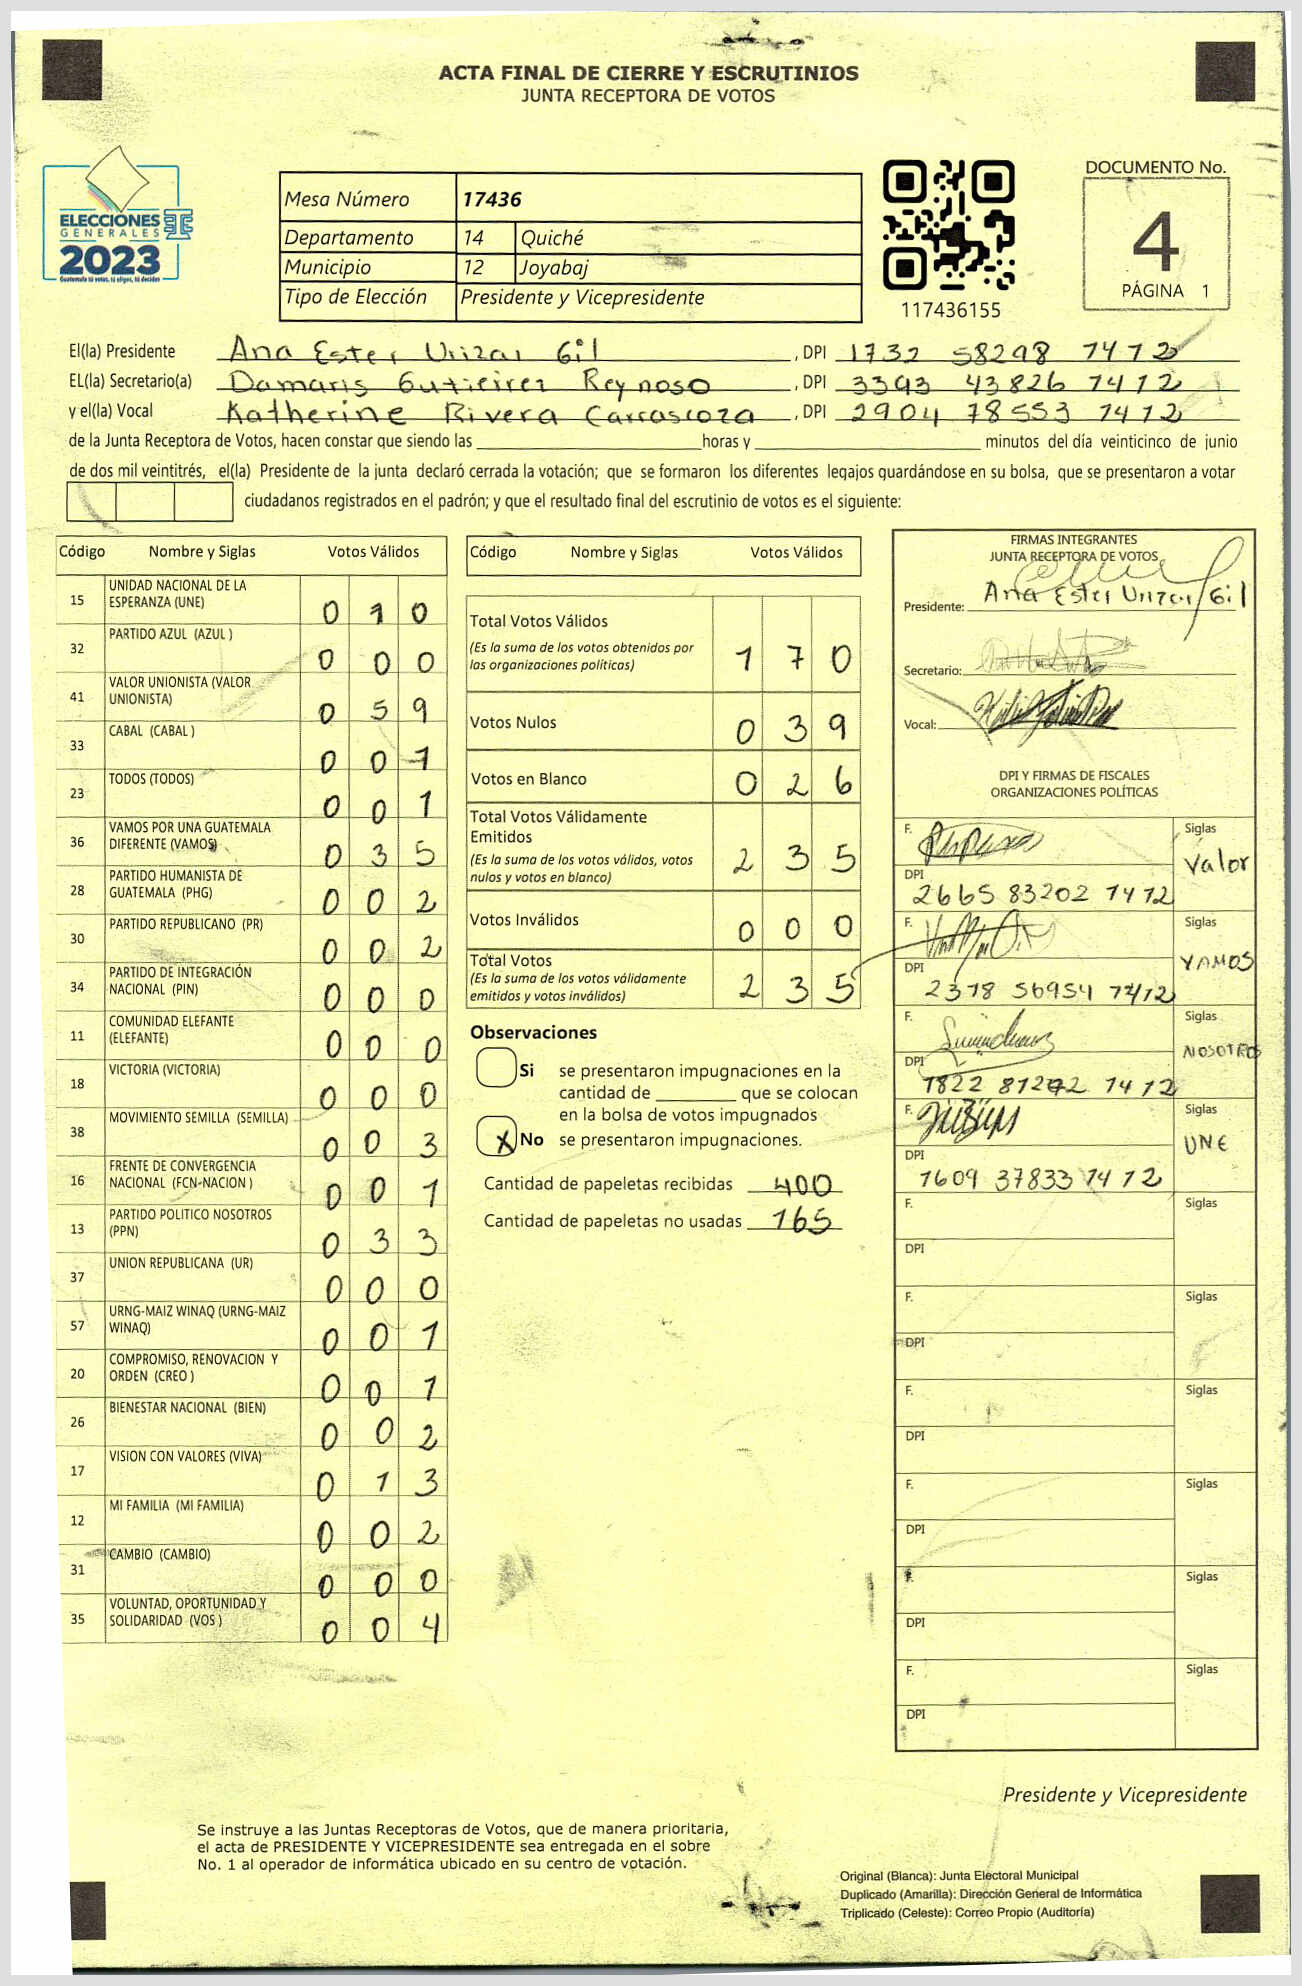 ACTA FINAL DE CIERRE Y ESCRUTINIOS
JUNTA RECEPTORA DE VOTOS
ELECCIONES
GENERALES
2023
Guatemala tú votas, tú eliges, tú decides
Mesa Número 17436
Departamento 14 Quiché
Municipio 12 Joyabaj
Tipo de Elección Presidente y Vicepresidente
117436155
DOCUMENTO No.
4
PÁGINA 1
El(la) Presidente Ana Ester Urizar Gil , DPI 1732 58298 1412
EL(la) Secretario(a) Damaris Gutierrez Reynoso , DPI 3393 43826 1412
y el(la) Vocal Katherine Rivera Carrascoza , DPI 2904 78553 1412
de la Junta Receptora de Votos, hacen constar que siendo las horas y minutos del día veinticinco de junio
de dos mil veintitrés, el(la) Presidente de la junta declaró cerrada la votación; que se formaron los diferentes legajos guardándose en su bolsa, que se presentaron a votar
ciudadanos registrados en el padrón; y que el resultado final del escrutinio de votos es el siguiente:
Código Nombre y Siglas Votos Válidos
15 UNIDAD NACIONAL DE LA ESPERANZA (UNE) 0 1 0
32 PARTIDO AZUL (AZUL ) 0 0 0
41 VALOR UNIONISTA (VALOR UNIONISTA) 0 5 9
33 CABAL (CABAL ) 0 0 1
23 TODOS (TODOS) 0 0 1
36 VAMOS POR UNA GUATEMALA DIFERENTE (VAMOS) 0 3 5
28 PARTIDO HUMANISTA DE GUATEMALA (PHG) 0 0 2
30 PARTIDO REPUBLICANO (PR) 0 0 2
34 PARTIDO DE INTEGRACIÓN NACIONAL (PIN) 0 0 0
11 COMUNIDAD ELEFANTE (ELEFANTE) 0 0 0
18 VICTORIA (VICTORIA) 0 0 0
38 MOVIMIENTO SEMILLA (SEMILLA) 0 0 3
16 FRENTE DE CONVERGENCIA NACIONAL (FCN-NACION ) 0 0 1
13 PARTIDO POLITICO NOSOTROS (PPN) 0 3 3
37 UNION REPUBLICANA (UR) 0 0 0
57 URNG-MAIZ WINAQ (URNG-MAIZ WINAQ) 0 0 1
20 COMPROMISO, RENOVACION Y ORDEN (CREO ) 0 0 1
26 BIENESTAR NACIONAL (BIEN) 0 0 2
17 VISION CON VALORES (VIVA) 0 1 3
12 MI FAMILIA (MI FAMILIA) 0 0 2
31 CAMBIO (CAMBIO) 0 0 0
35 VOLUNTAD, OPORTUNIDAD Y SOLIDARIDAD (VOS ) 0 0 4
Código Nombre y Siglas Votos Válidos
Total Votos Válidos 1 7 0
(Es la suma de los votos obtenidos por
las organizaciones políticas)
Votos Nulos 0 3 9
Votos en Blanco 0 2 6
Total Votos Válidamente
Emitidos 2 3 5
(Es la suma de los votos válidos, votos
nulos y votos en blanco)
Votos Inválidos 0 0 0
Total Votos 2 3 5
(Es la suma de los votos válidamente
emitidos y votos inválidos)
Observaciones
Si se presentaron impugnaciones en la
cantidad de que se colocan
en la bolsa de votos impugnados
X No se presentaron impugnaciones.
Cantidad de papeletas recibidas 400
Cantidad de papeletas no usadas 165
FIRMAS INTEGRANTES
JUNTA RECEPTORA DE VOTOS
Presidente: Ana Ester Urizar Gil
Secretario:
Vocal:
DPI Y FIRMAS DE FISCALES
ORGANIZACIONES POLÍTICAS
F. Siglas
Valor
DPI
2665 83202 1412
F. Siglas
VAMOS
DPI
2378 56954 1412
F. Siglas
NOSOTROS
DPI
1822 81272 1412
F. Siglas
UNE
DPI
1609 37833 1412
F. Siglas
DPI
F. Siglas
DPI
F. Siglas
DPI
F. Siglas
DPI
F. Siglas
DPI
F. Siglas
DPI
Presidente y Vicepresidente
Se instruye a las Juntas Receptoras de Votos, que de manera prioritaria,
el acta de PRESIDENTE Y VICEPRESIDENTE sea entregada en el sobre
No. 1 al operador de informática ubicado en su centro de votación.
Original (Blanca): Junta Electoral Municipal
Duplicado (Amarilla): Dirección General de Informática
Triplicado (Celeste): Correo Propio (Auditoría)